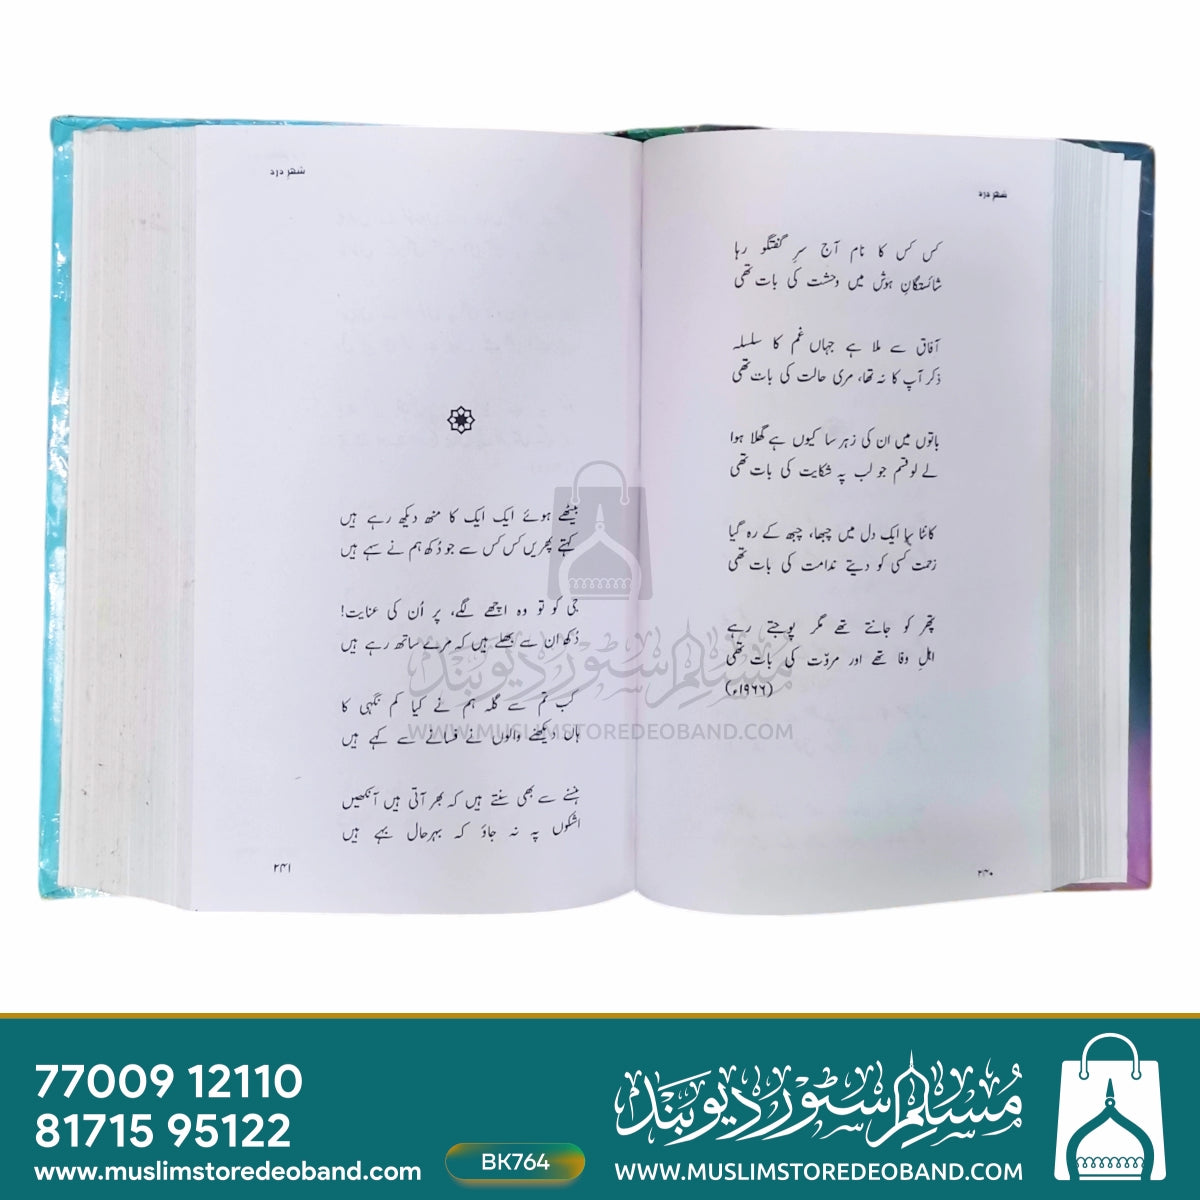 شہر درد
کس کس کا نام آج سرِ گفتگو رہا
شائستگانِ ہوش میں وحشت کی بات تھی
آفاق سے ملا ہے جہاں غم کا سلسلہ
ذکر آپ کا نہ تھا، مری حالت کی بات تھی
باتوں میں ان کی زہر سا کیوں ہے گھلا ہوا
لے لو قسم جو لب پہ شکایت کی بات تھی
کانٹا سا ایک دل میں چبھا، چبھ کے رہ گیا
زحمت کسی کو دیتے ندامت کی بات تھی
پتھر کو جانتے تھے مگر پوجتے رہے
اہلِ وفا تھے اور مروّت کی بات تھی
(۱۹۶۶ء)
۲۴۰
شہر درد
بیٹھے ہوئے ایک ایک کا منھ دیکھ رہے ہیں
کہتے پھریں کس کس سے جو دُکھ ہم نے سہے ہیں
جی کو تو وہ اچھے لگے، پر اُن کی عنایت!
دُکھ ان سے بھلے ہیں کہ مرے ساتھ رہے ہیں
کب تم سے گلہ ہم نے کیا کم نگہی کا
ہاں دیکھنے والوں نے فسانے سے کہے ہیں
ہنسنے سے بھی سنتے ہیں کہ بھر آتی ہیں آنکھیں
اشکوں پہ نہ جاؤ کہ بہرحال بہے ہیں
۲۴۱
مسلم سٹور دیوبند
WWW.MUSLIMSTOREDEOBAND.COM
77009 12110
81715 95122
www.muslimstoredeoband.com
BK764
مسلم سٹور دیوبند
WWW.MUSLIMSTOREDEOBAND.COM